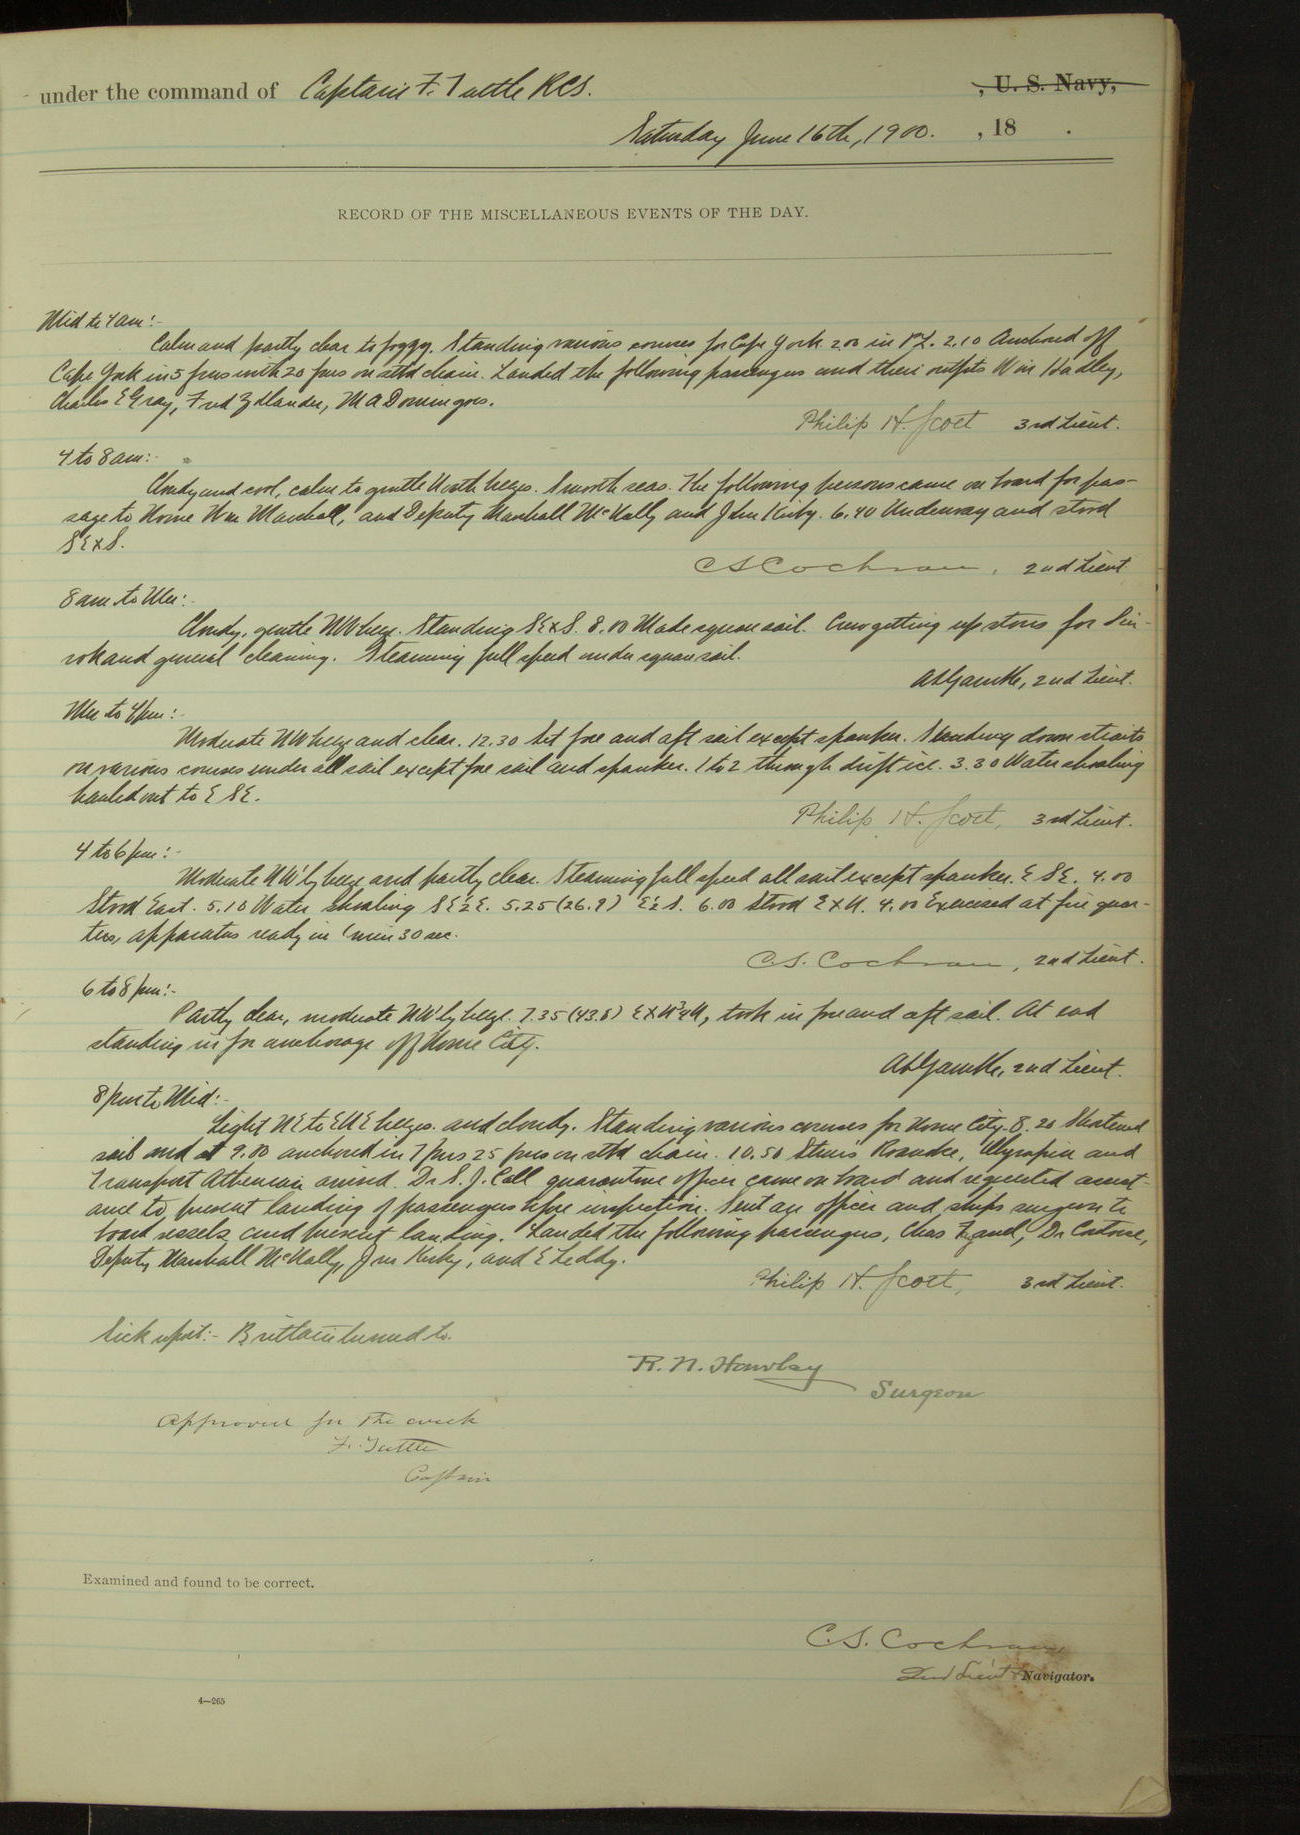 under the command of Captain F. Tuttle RCS. , U. S. Navy,
Saturday June 16th, 1900. , 18 .
RECORD OF THE MISCELLANEOUS EVENTS OF THE DAY.
Mid to 4 am:-
Calm and partly clear to foggy. Standing various courses for Cape York 2.00 in 2.10 Anchored off
Cape York in 5 fms with 20 fms on stbd chain. Landed the following passengers and their outfits Wm Hadley,
Charles E Gray, Fred M A Domingos.
Philip H. Scott 3rd Lieut.
4 to 8 am:-
Cloudy and cool, calm to gentle North breeze. Smooth seas. The following persons came on board for pas-
sage to Nome Wm Marshall, and Deputy Marshall McNally and John Kirby. 6.40 Underway and stood
SExS.
C S Cochran, 2nd Lieut
8 am to Mer:-
Cloudy, gentle NW breeze. Standing SExS. 8.00 Made square sail. Crew getting up stores for Sin-
rok and general cleaning. Steaming full speed under square sail.
A L Gamble, 2nd Lieut.
Mer to 4 pm:-
Moderate NW breeze and clear. 12.30 Set fore and aft sail except spanker. Standing down straits
on various courses under all sail except fore sail and spanker. 1 to 2 through drift ice. 3.30 Water shoaling
hauled out to ESE.
Philip H. Scott, 3rd Lieut.
4 to 6 pm:-
Moderate NW'ly breeze and partly clear. Steaming full speed all sail except spanker. ESE. 4.00
Stood East. 5.10 Water shoaling SE½E. 5.25 (26.9) E½S. 6.00 Stood ExN. 4.00 Exercised at fire quar-
ters, apparatus ready in 1 min 30 sec.
C. S. Cochran, 2nd Lieut.
6 to 8 pm:-
Partly clear, moderate NW'ly breeze. 7.35 (43.8) ExN¾N, took in fore and aft sail. At end
standing in for anchorage off Nome City.
A L Gamble, 2nd Lieut.
8 pm to Mid:-
Light NE to ENE breezes and cloudy. Standing various courses for Nome City. 8.20 Shortened
sail and at 9.00 anchored in 7 fms 25 fms on stbd chain. 10.50 Stmrs Roanoke, Olympia and
Transport Athenian arrived. Dr S. J. Call quarantine officer came on board and requested assist-
ance to prevent landing of passengers before inspection. Sent an officer and ships surgeon to
board vessels and prevent landing. Landed the following passengers, Chas Dr
Deputy Marshall McNally, Jno Kirby, and E Leddy.
Philip H. Scott, 3rd Lieut.
Sick report:- Brittain turned to.
R. N. Hawley
Surgeon
Approved for the week
F. Tuttle
Captain
Examined and found to be correct.
C. S. Cochran,
2nd Lieut Navigator.
4—265